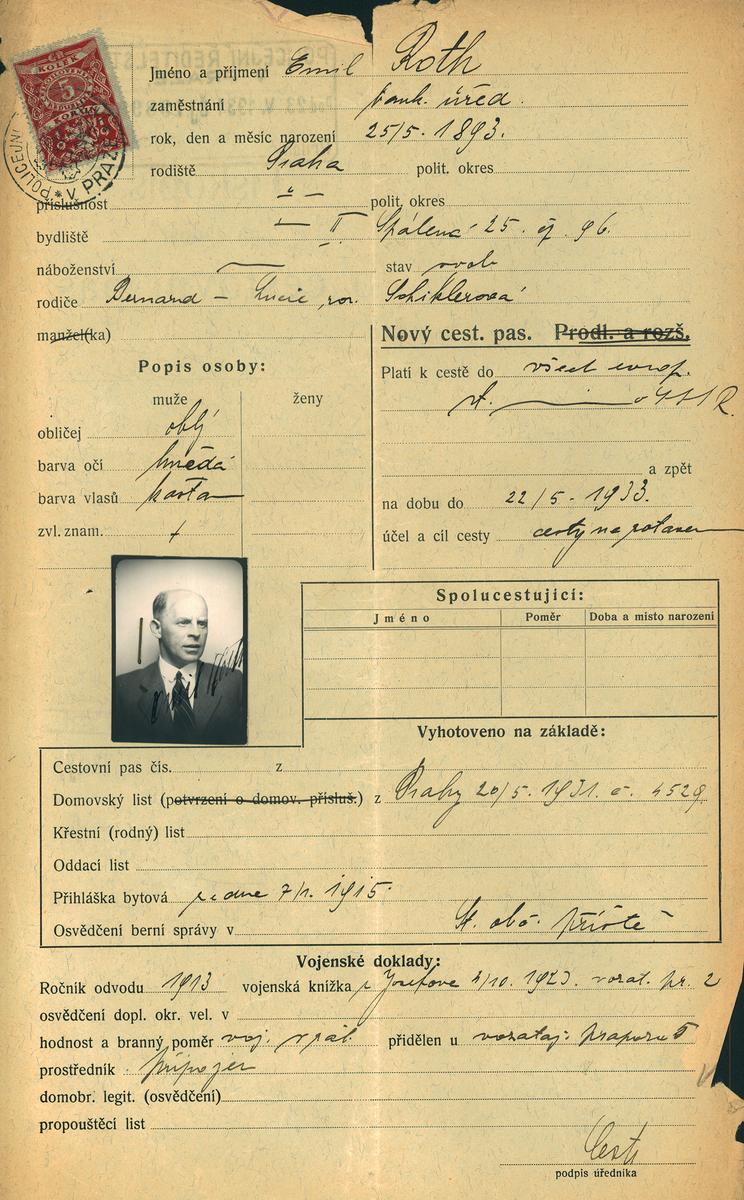 KOLEK
5
KORUN
POLICEJNÍ
V PRAZE
Jméno a příjmení Emil Roth
zaměstnání bank. úřed.
rok, den a měsíc narození 25/5. 1893.
rodiště Praha polit. okres
příslušnost -"- polit. okres
bydliště -"- II. Spálená 25. čj. 96.
náboženství — stav svob
rodiče Bernard – Lucie, roz. Schiklerová
manžel(ka)
Nový cest. pas. Prodl. a rozš.
Popis osoby:
Platí k cestě do všech evrop.
muže ženy
st. SSSR.
obličej oblý
barva očí hnědá
a zpět
barva vlasů kaštan
na dobu do 22/5. 1933.
zvl. znam. +
účel a cíl cesty cesty na
Spolucestující:
Jméno Poměr Doba a misto narozeni
Vyhotoveno na základě:
Cestovní pas čís. z
Domovský list (potvrzení o domov. přísluš.) z Prahy 20/5. 1931. č. 4529
Křestní (rodný) list
Oddací list
Přihláška bytová ze dne 7/1. 1915.
Osvědčení berní správy v St. obč. příště
Vojenské doklady:
Ročník odvodu 1913 vojenská knížka z Josefova 4/10. 1923. vozat. pr. 2
osvědčení dopl. okr. vel. v
hodnost a branný poměr voj. v zál. přidělen u vozataj. praporu 5
prostředník
domobr. legit. (osvědčení)
propouštěcí list
podpis úředníka